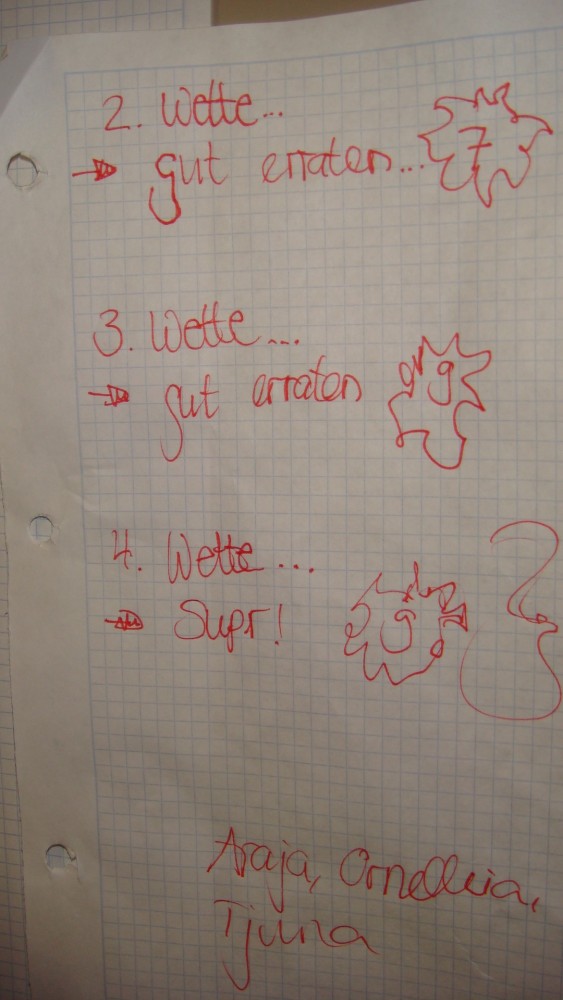 2. Wette...
→ gut erraten... 7
3. Wette...
→ gut erraten 9
4. Wette...
→ Supr! 9
Araja, Ornelleia,
Tjuna